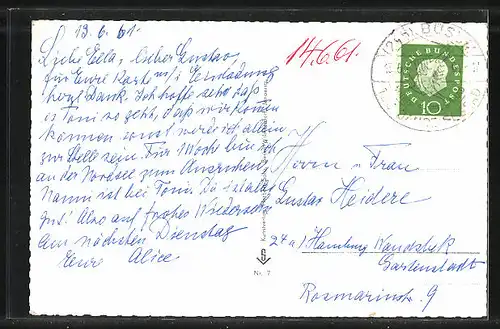 13.6.61.
Liebe Ella, lieber Gustav,
für Eure Karte u. Einladung
herzl. Dank. Ich hoffe sehr, daß
es Toni so geht, daß wir kommen
können sonst werde ich allein
zur Stelle sein. Für 1 Woche bin ich
an der Nordsee zum Ausruhen,
Nanni ist bei Toni. Die ist
gut. Also auf frohes Wiedersehen
am nächsten Dienstag
Eure Alice
14.6.61.
BÜSUM
DEUTSCHE BUNDESPOST
10
Herrn u. Frau
Gustav Heidere
24a/ Hamburg Wandsbek
Gartenstadt
Rosmarinstr. 9
Nr. 7